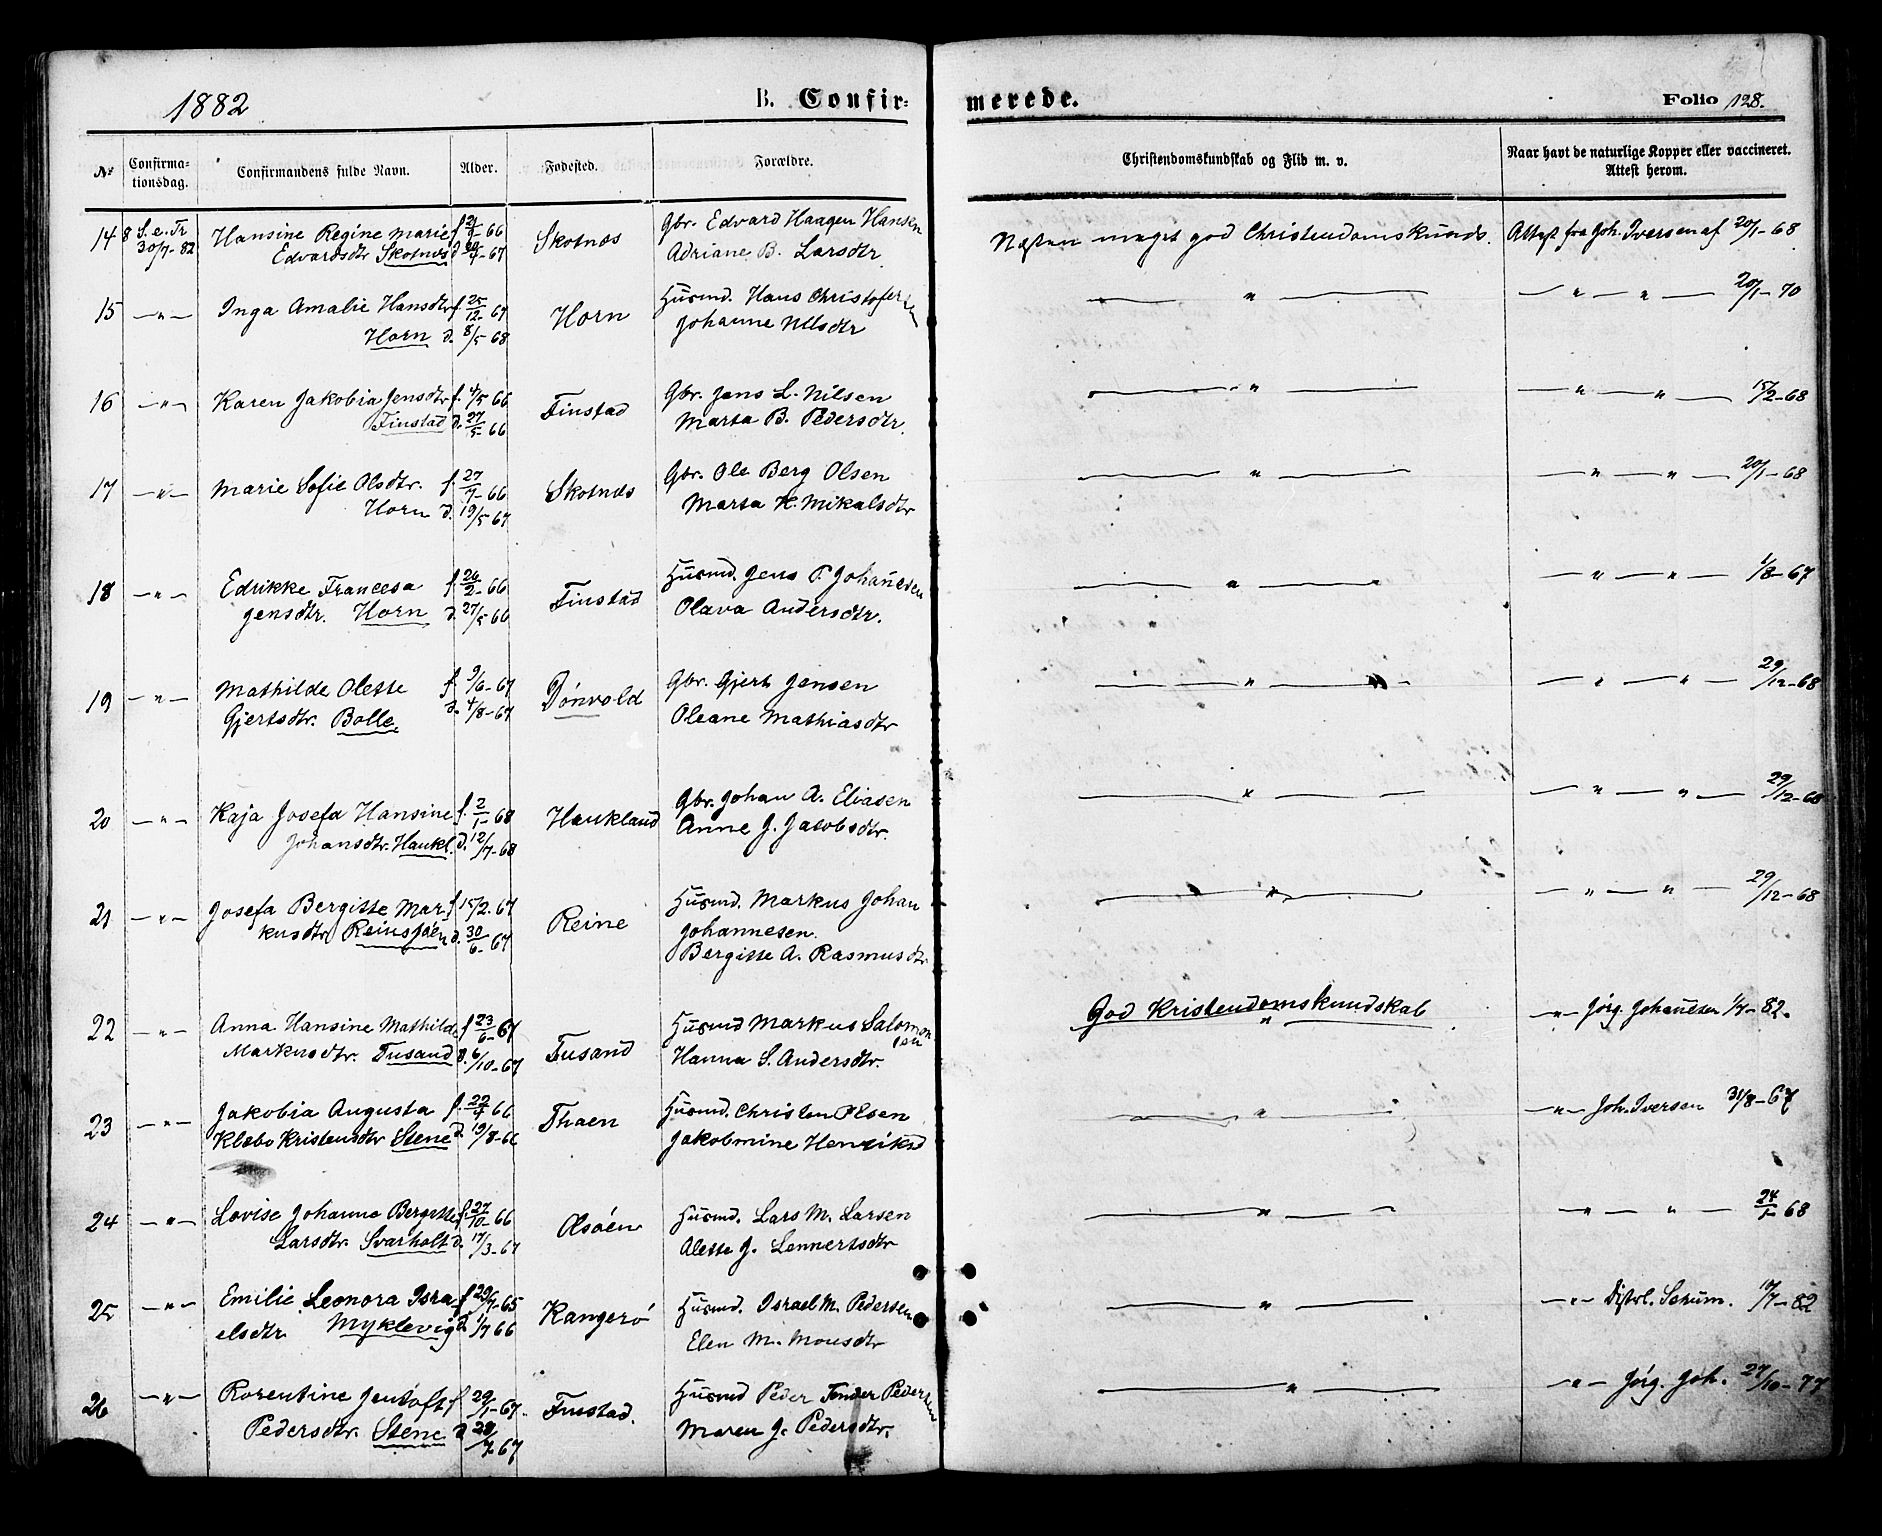 1882
B. Confir-
merede.
Folio 128.
№
Confirma-
tionsdag.
Confirmandens fulde Navn.
Alder.
Fødested.
Forældre.
Christendomskundskab og Flid m. v.
Naar havt de naturlige Kopper eller vaccineret.
Attest herom.
14 8 S. e. Tr Hansine Regine Marie f. Skotnes Gbr. Edvard Haagen Hansen Attest fra Joh. Iversen af 20/1-68
30/7-82 Edvardsdtr Skotnes d. Adriane B. Larsdtr Næsten meget god Christendomskunds.
15 —"— Inga Amalie Hansdtr f. 25/12-67 Horn Husmd. Hans Christofersen — " — — " — " — 20/1-70
Horn d. 8/5-68 Johanne Nilsdtr
16 —"— Karen Jakobia Jensdtr f. 4/5 66 Finstad Gbr. Jens L. Nilsen — " — — " — " — 15/2-68
Finstad d. 27/5-66 Marta B. Pedersdtr.
17 —"— Marie Sofie Olsdtr. f. 27/7-66 Skotnes Gbr. Ole Berg Olsen — " — — " — " — 20/1-68
Horn d. 19/5-67 Marta K. Mikalsdtr
18 —"— Edrikke Francesa f. 26/2-66 Finstad Husmd. Jens P. Johannesen — " — — " — " — 1/8-67
Jensdtr. Horn d. 27/5 66 Olava Andersdtr.
19 —"— Mathilde Olette f. 9/6-67 Dønvold Gbr. Gjert Jensen — " — — " — " — 29/12-68
Gjertsdtr. Bolle d. 4/8-67 Oleane Mathiasdtr
20 —"— Kaja Josefa Hansine f. 2/1-68 Haukland Gbr. Johan A. Eliasen — " — — " — " — 29/12-68
Johansdtr. Haukl. d. 12/7-68 Anne J. Jacobsdtr.
21 —"— Josefa Bergitte Mar- f. 15/2-67 Reine Husmd. Markus Johan — " — — " — " — 29/12-68
kusdtr Reinsjøen d. 30/6-67 Johannesen.
Bergitte A. Rasmusdtr
22 —"— Anna Hansine Mathilde f. 23/6-67 Tusand Husmd Markus Salomon God Kristendomskundskab —"— Jørg. Johannesen 1/7-82.
Markusdtr. Tusand d. 6/10-67 sen
Hanna S. Andersdtr.
23 —"— Jakobia Augusta f. 22/4 66 Thaen Husmd. Christen Olsen — " — —"— Joh. Iversen 31/8-67
Klæbo Kristensdtr Stene d. 19/8-66 Jakobmine Henriksd
24 —"— Lovise Johanne Bergitte f. 27/10-66 Olsøen Husmd. Lars M. Larsen — " — " — " — 24/1-68
Larsdtr. Svarholt d. 17/3-67 Alette J. Lennertsdtr
25 —"— Emilie Leonora Isra- f. 29/7-65 Kangerø Husmd. Israel M. Pedersen — " — —"— Distrl. Schum. 10/7-82
elsdtr Myklevig d. 1/7 66 Elen M. Monsdtr
26 —"— Rorentine Jentoft f. 29/1-67. Finstad. Husmd Peder Tønder Pedersen — " — —"— Jørg. Joh. 27/10-77
Pedersdtr. Stene d. 28/7 67 Maren J. Pedersdtr.